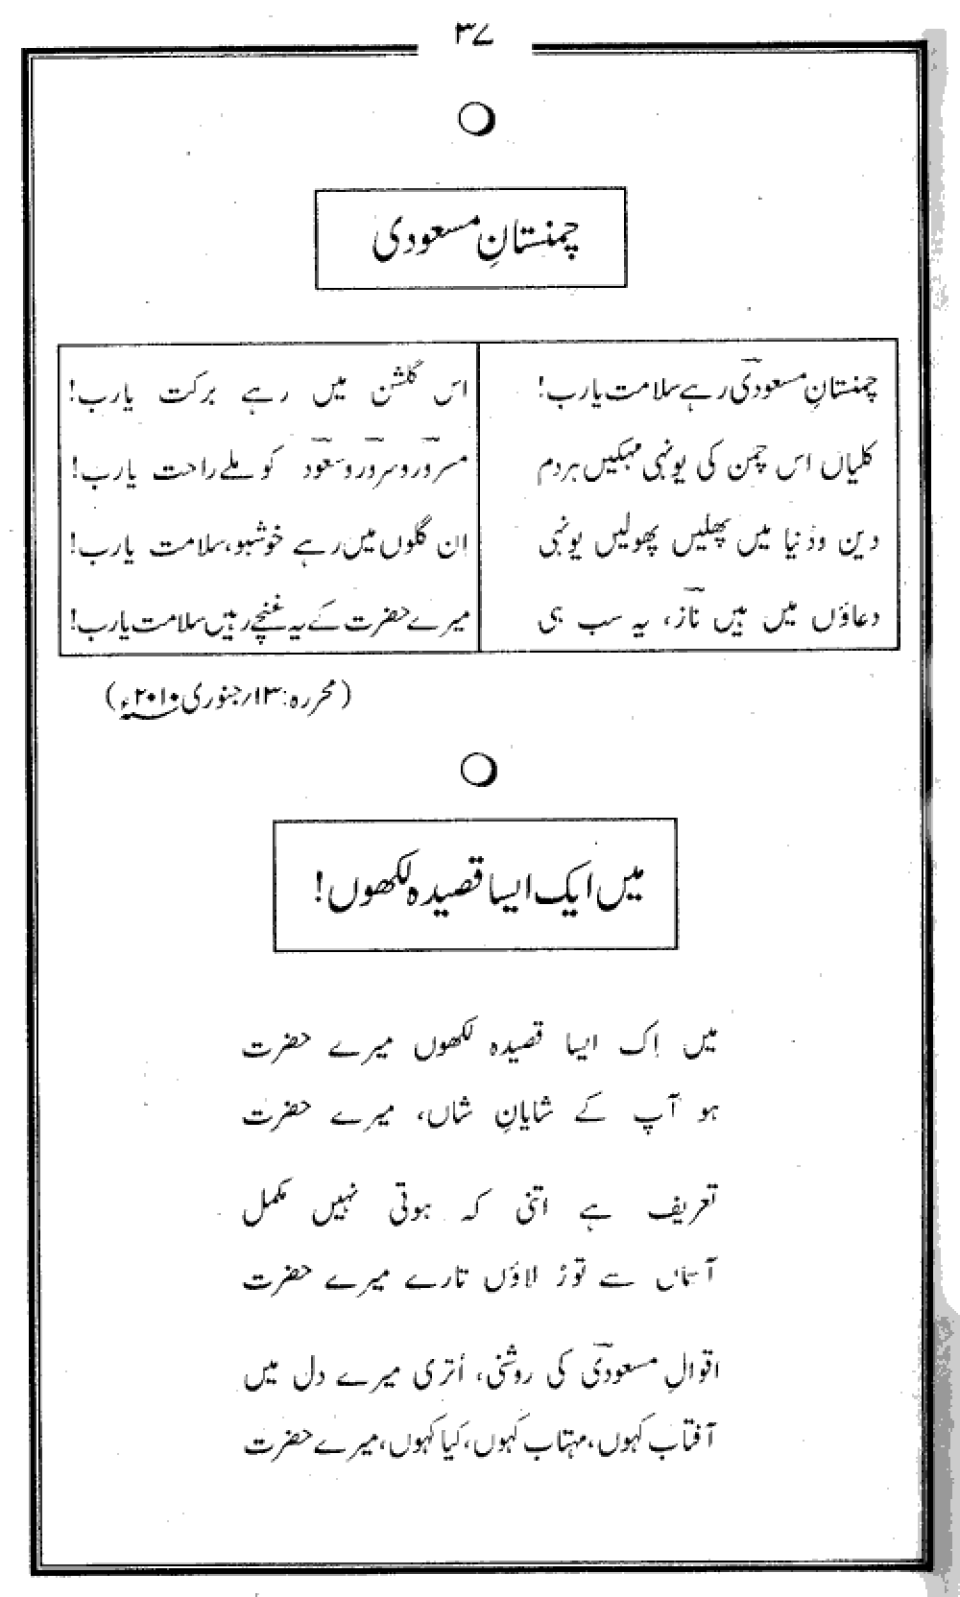 ۳۷
چمنستانِ مسعودی
چمنستانِ مسعودیؔ رہے سلامت یارب! اس گلشن میں رہے برکت یارب!
کلیاں اس چمن کی یونہی مہکیں ہردم مسرورؔ و سرورؔ و سعودؔ کو ملے راحت یارب!
دین و دُنیا میں پھلیں پھولیں یونہی ان گلوں میں رہے خوشبو، سلامت یارب!
دعاؤں میں ہیں نازؔ، یہ سب ہی میرے حضرت کے یہ غنچے رہیں سلامت یارب!
(محررہ: ۱۳؍جنوری ۲۰۱۰ء)
میں ایک ایسا قصیدہ لکھوں!
میں اِک ایسا قصیدہ لکھوں میرے حضرت
ہو آپ کے شایانِ شاں، میرے حضرت
تعریف ہے اتنی کہ ہوتی نہیں مکمل
آسماں سے توڑ لاؤں تارے میرے حضرت
اقوالِ مسعودیؔ کی روشنی، اُتری میرے دل میں
آفتاب کہوں، مہتاب کہوں، کیا کہوں، میرے حضرت